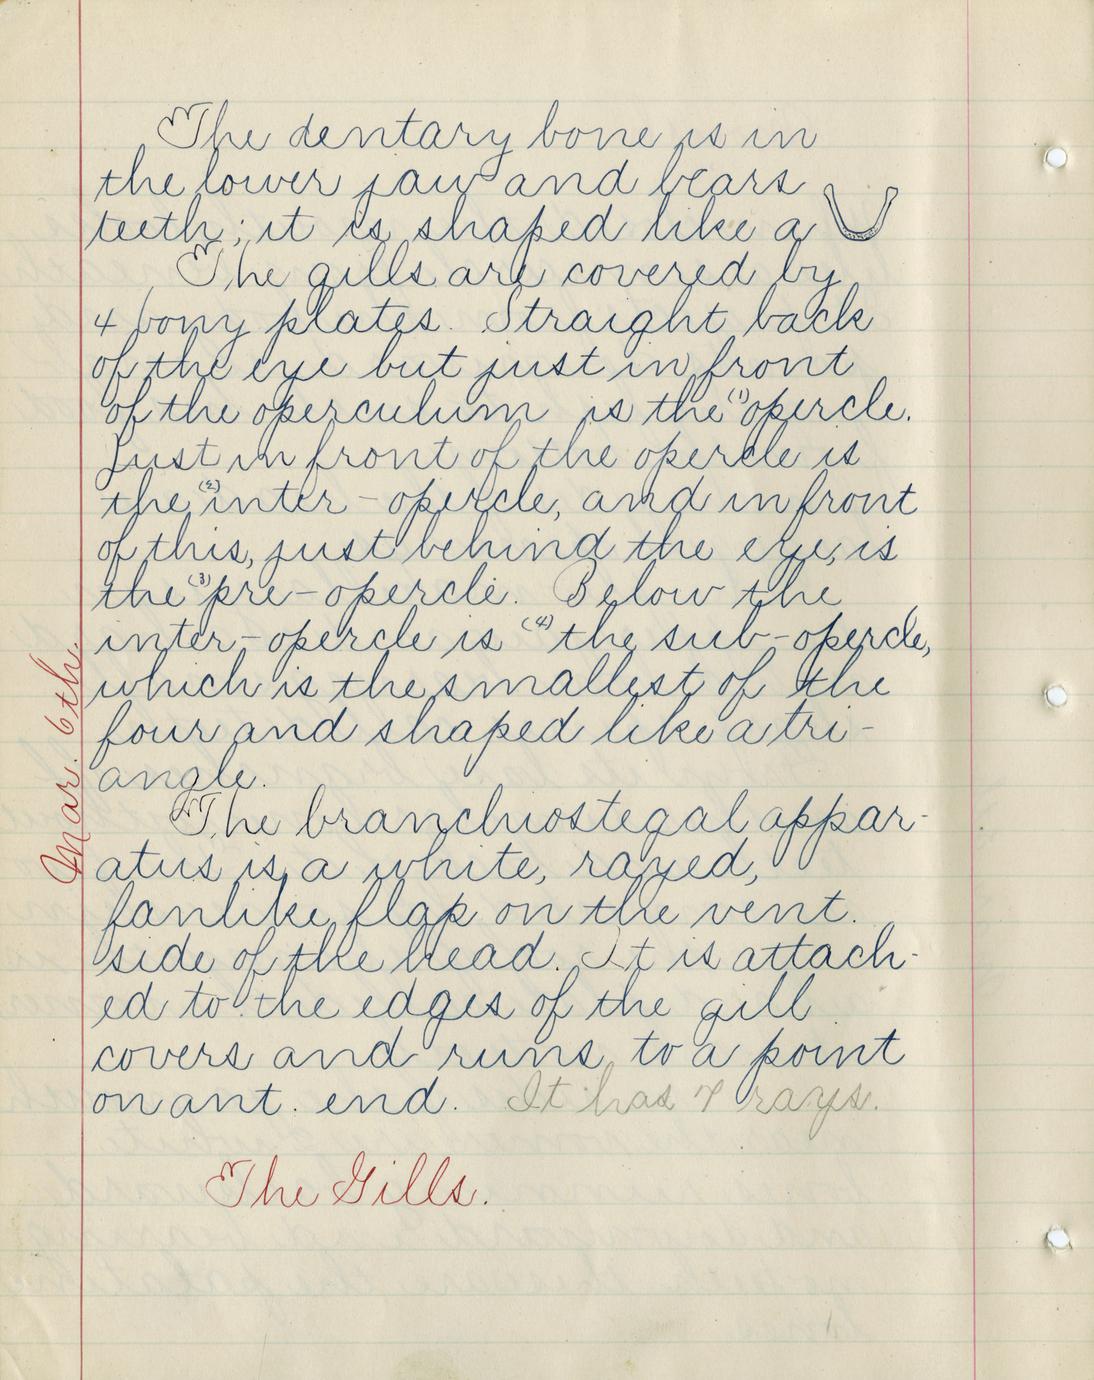 The dentary bone is in
the lower jaw and bears
teeth; it is shaped like a
The gills are covered by
4 bony plates. Straight back
of the eye but just in front
of the operculum is the (1) opercle.
Just in front of the opercle is
the (2) inter-opercle, and in front
of this, just behind the eye, is
the (3) pre-opercle. Below the
inter-opercle is (4) the sub-opercle,
which is the smallest of the
four and shaped like a tri-
angle.
Mar. 6th.
The branchiostegal appar-
atus is a white, rayed,
fanlike flap on the vent.
side of the head. It is attach-
ed to the edges of the gill
covers and runs to a point
on ant. end. It has 7 rays.
The Gills.